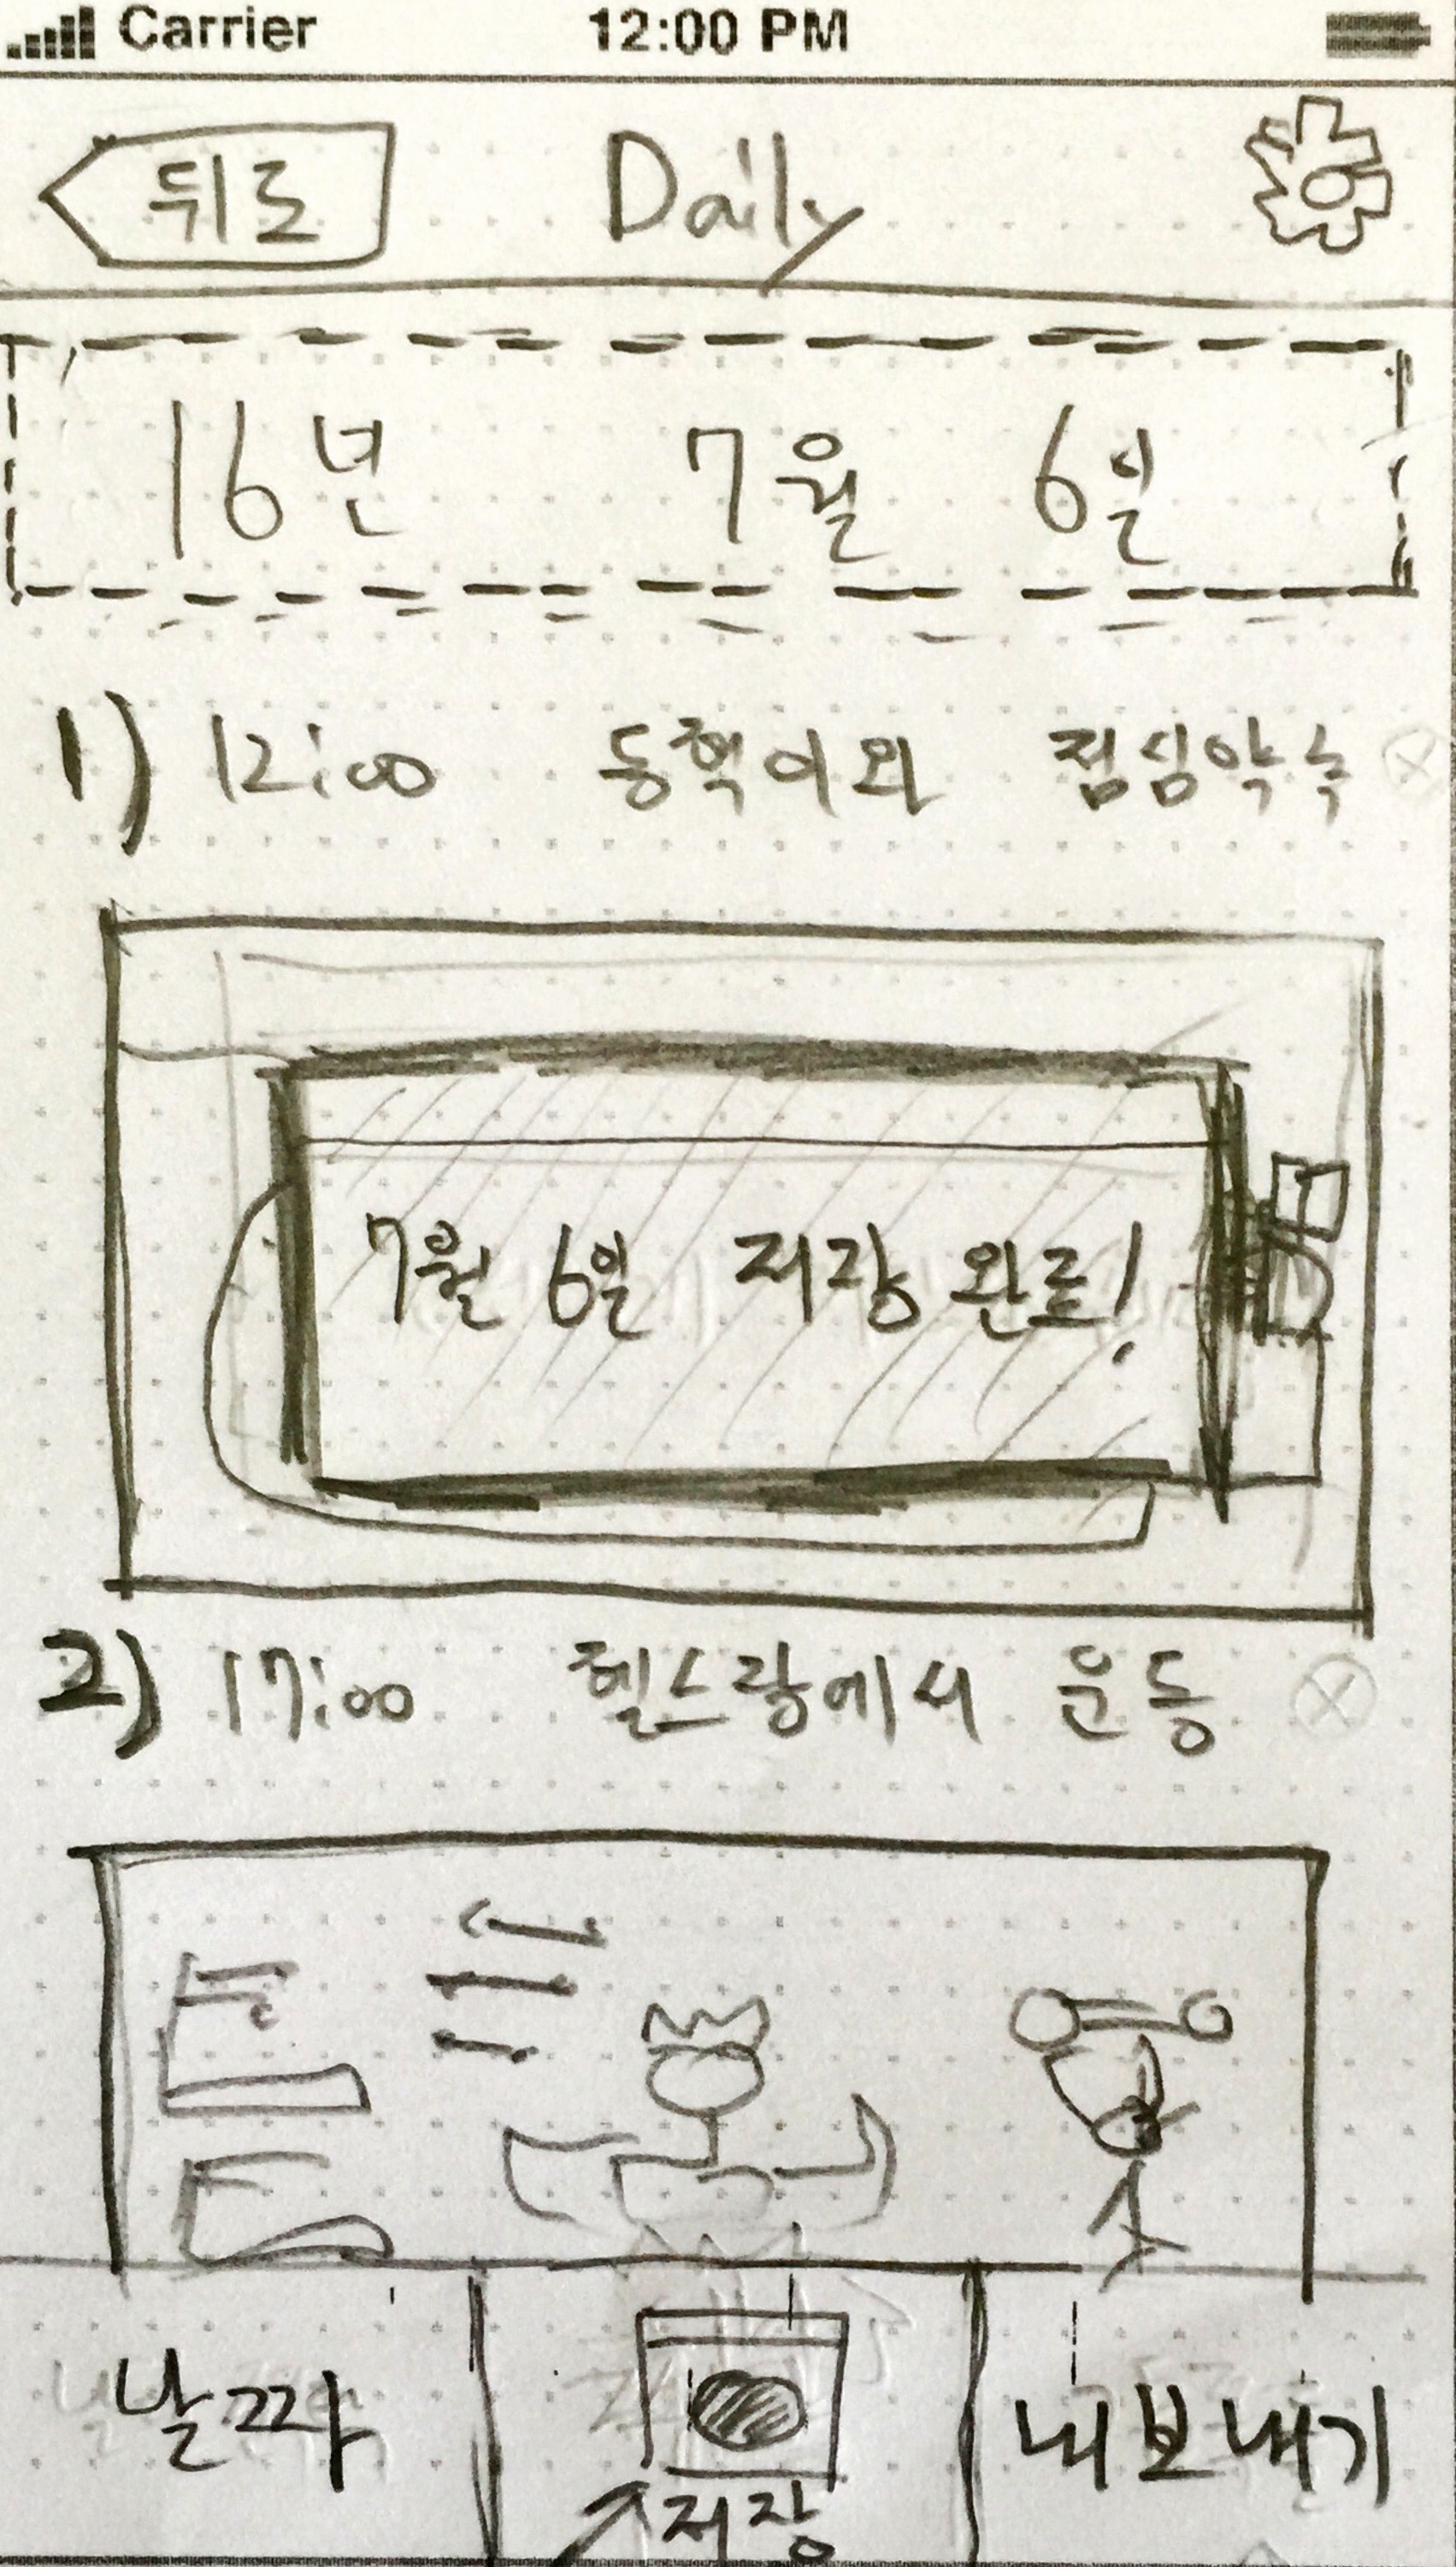 Carrier 12:00 PM
뒤로 Daily
16년 7월 6일
1) 12:00 동혁이와 점심약속
7월 6일 저장 완료!
2) 17:00 헬스장에서 운동
날짜 저장 내보내기